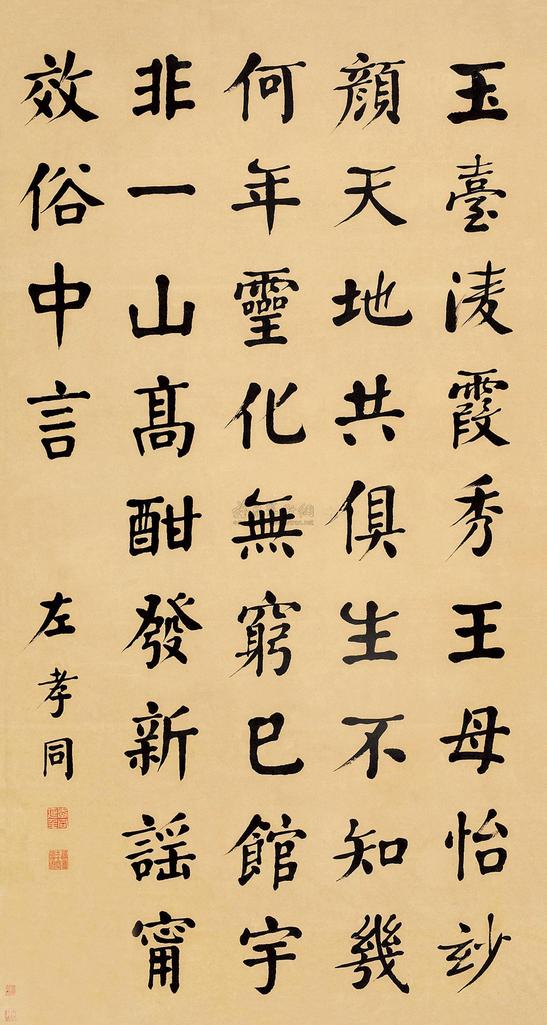 玉臺凌霞秀王母怡妙
顏天地共俱生不知幾
何年靈化無窮巳館宇
非一山高酣發新謠甯
效俗中言
左孝同